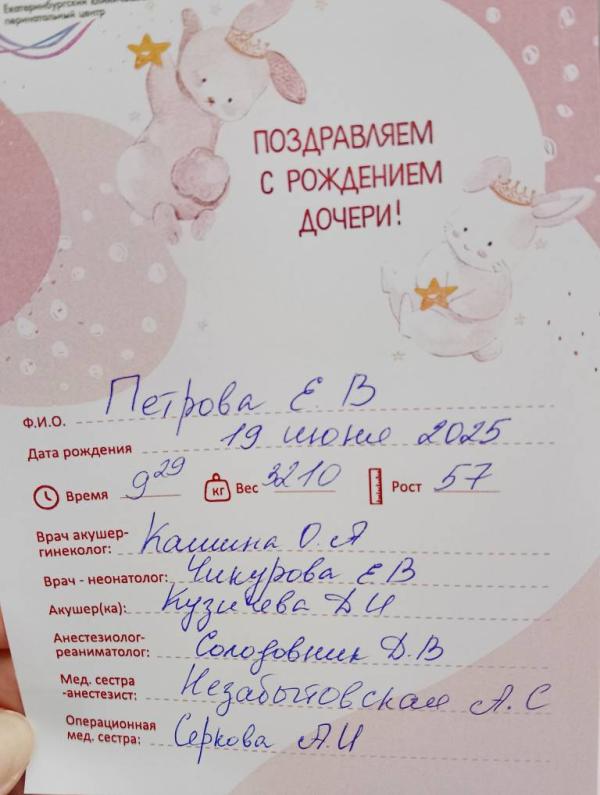 Екатеринбургский клинический
перинатальный центр
ПОЗДРАВЛЯЕМ
С РОЖДЕНИЕМ
ДОЧЕРИ!
Ф.И.О. Петрова Е В
Дата рождения 19 июня 2025
Время 9 29 кг Вес 3210 Рост 57
Врач акушер-
гинеколог: Кашина О.А
Врач - неонатолог: Чикурова Е В
Акушер(ка): Кузичева Д И
Анестезиолог-
реаниматолог: Солодовник Д.В
Мед. сестра
-анестезист: Незабытовская А.С
Операционная
мед. сестра: Серкова А.И